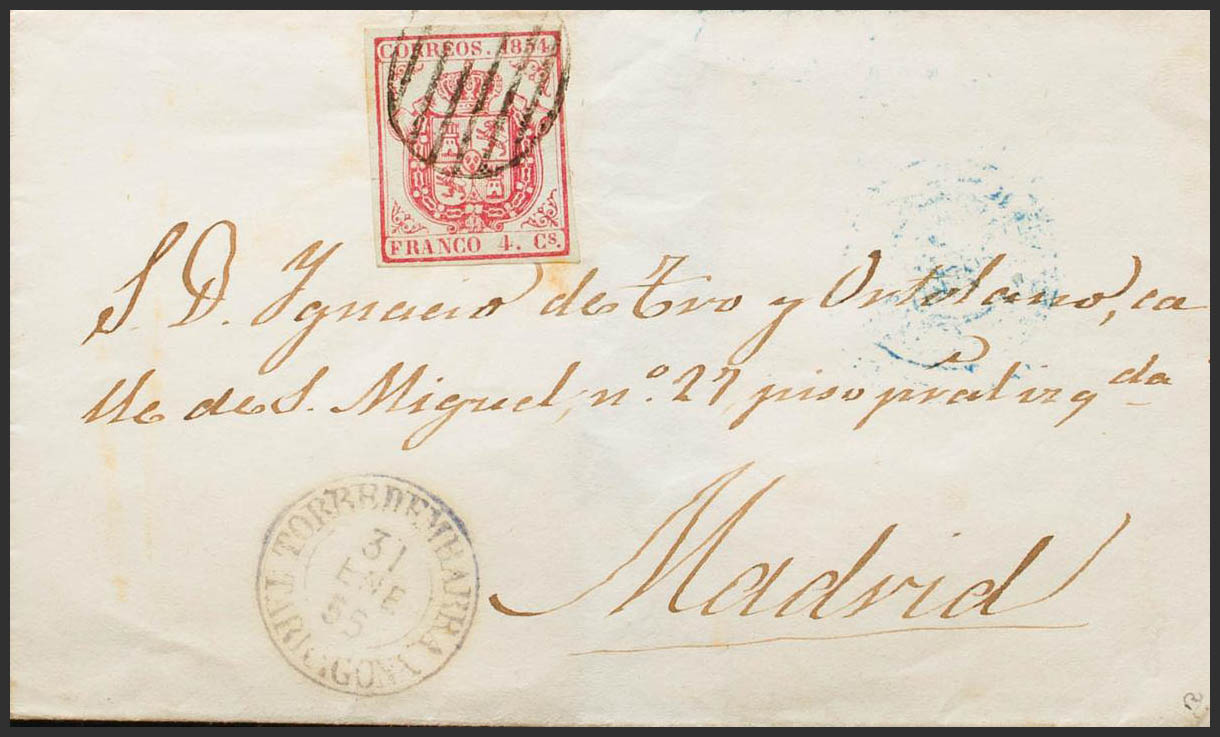 CORREOS. 1854
FRANCO 4. Cs.
S. D. Ygnacio de Tro y Ortolano, ca
lle de S. Miguel, nº. 27, piso pral izqda
Madrid
TORREDEMBARRA
31
ENE
TARRAGONA